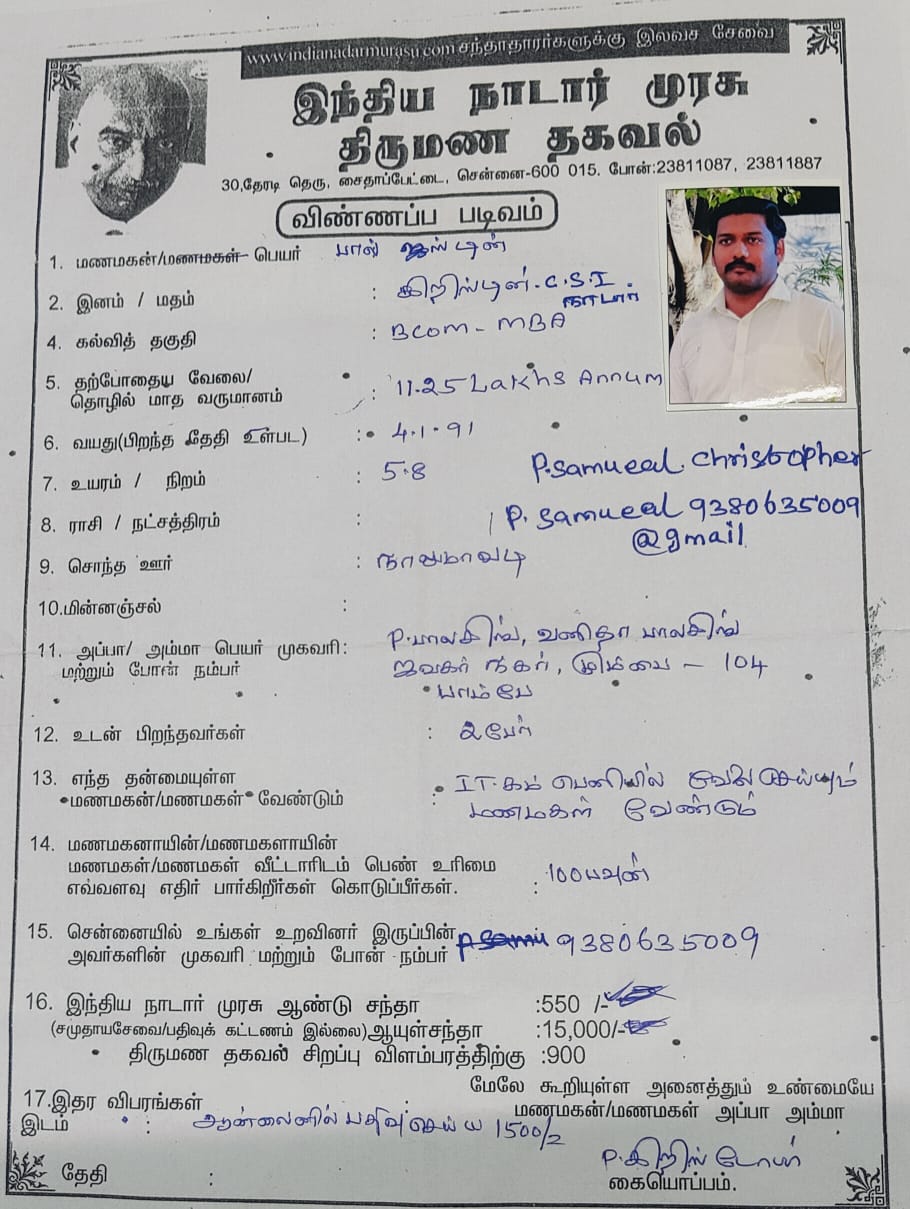 www.indianadarmurasu.com சந்தாதாரர்களுக்கு இலவச சேவை
இந்திய நாடார் முரசு
திருமண தகவல்
30,தேரடி தெரு, சைதாப்பேட்டை, சென்னை-600 015. போன்:23811087, 23811887
விண்ணப்ப படிவம்
1. மணமகன்/மணமகள் பெயர் பால் ஜஸ்டின்
2. இனம் / மதம் : கிறிஸ்டின்-C.S.I
நாடார்
4. கல்வித் தகுதி : BCOM - MBA
5. தற்போதைய வேலை/
தொழில் மாத வருமானம் : 11.25 Lakhs Annum
6. வயது(பிறந்த தேதி உள்பட) : 4.1.91
7. உயரம் / நிறம் : 5.8 P.samueal.christopher
8. ராசி / நட்சத்திரம் : P.samueal 9380635009
@gmail
9. சொந்த ஊர் : நாலுமாவடி
10.மின்னஞ்சல் :
11. அப்பா/ அம்மா பெயர் முகவரி: P.பாலகிங், வனிதா பாலகிங்
மற்றும் போன் நம்பர் ஜவகர் நகர், மும்பை - 104
பாம்பே
12. உடன் பிறந்தவர்கள் : 2 பேர்
13. எந்த தன்மையுள்ள IT-கம் பெனியில் வேலை செய்யும்
மணமகன்/மணமகள் வேண்டும் : மணமகள் வேண்டும்
14. மணமகனாயின்/மணமகளாயின்
மணமகள்/மணமகள் வீட்டாரிடம் பெண் உரிமை
எவ்வளவு எதிர் பார்கிறீர்கள் கொடுப்பீர்கள். : 100 பவுன்
15. சென்னையில் உங்கள் உறவினர் இருப்பின்
அவர்களின் முகவரி மற்றும் போன் நம்பர் P samu 9380635009
16. இந்திய நாடார் முரசு ஆண்டு சந்தா :550 /-
(சமுதாயசேவை/பதிவுக் கட்டணம் இல்லை)ஆயுள்சந்தா :15,000/-
திருமண தகவல் சிறப்பு விளம்பரத்திற்கு :900
மேலே கூறியுள்ள அனைத்தும் உண்மையே
17.இதர விபரங்கள் : மணமகன்/மணமகள் அப்பா அம்மா
இடம் : ஆன்லைனில் பதிவு செய்ய 1500/2
P.கிறிஸ்டோபர்
தேதி : கையொப்பம்.